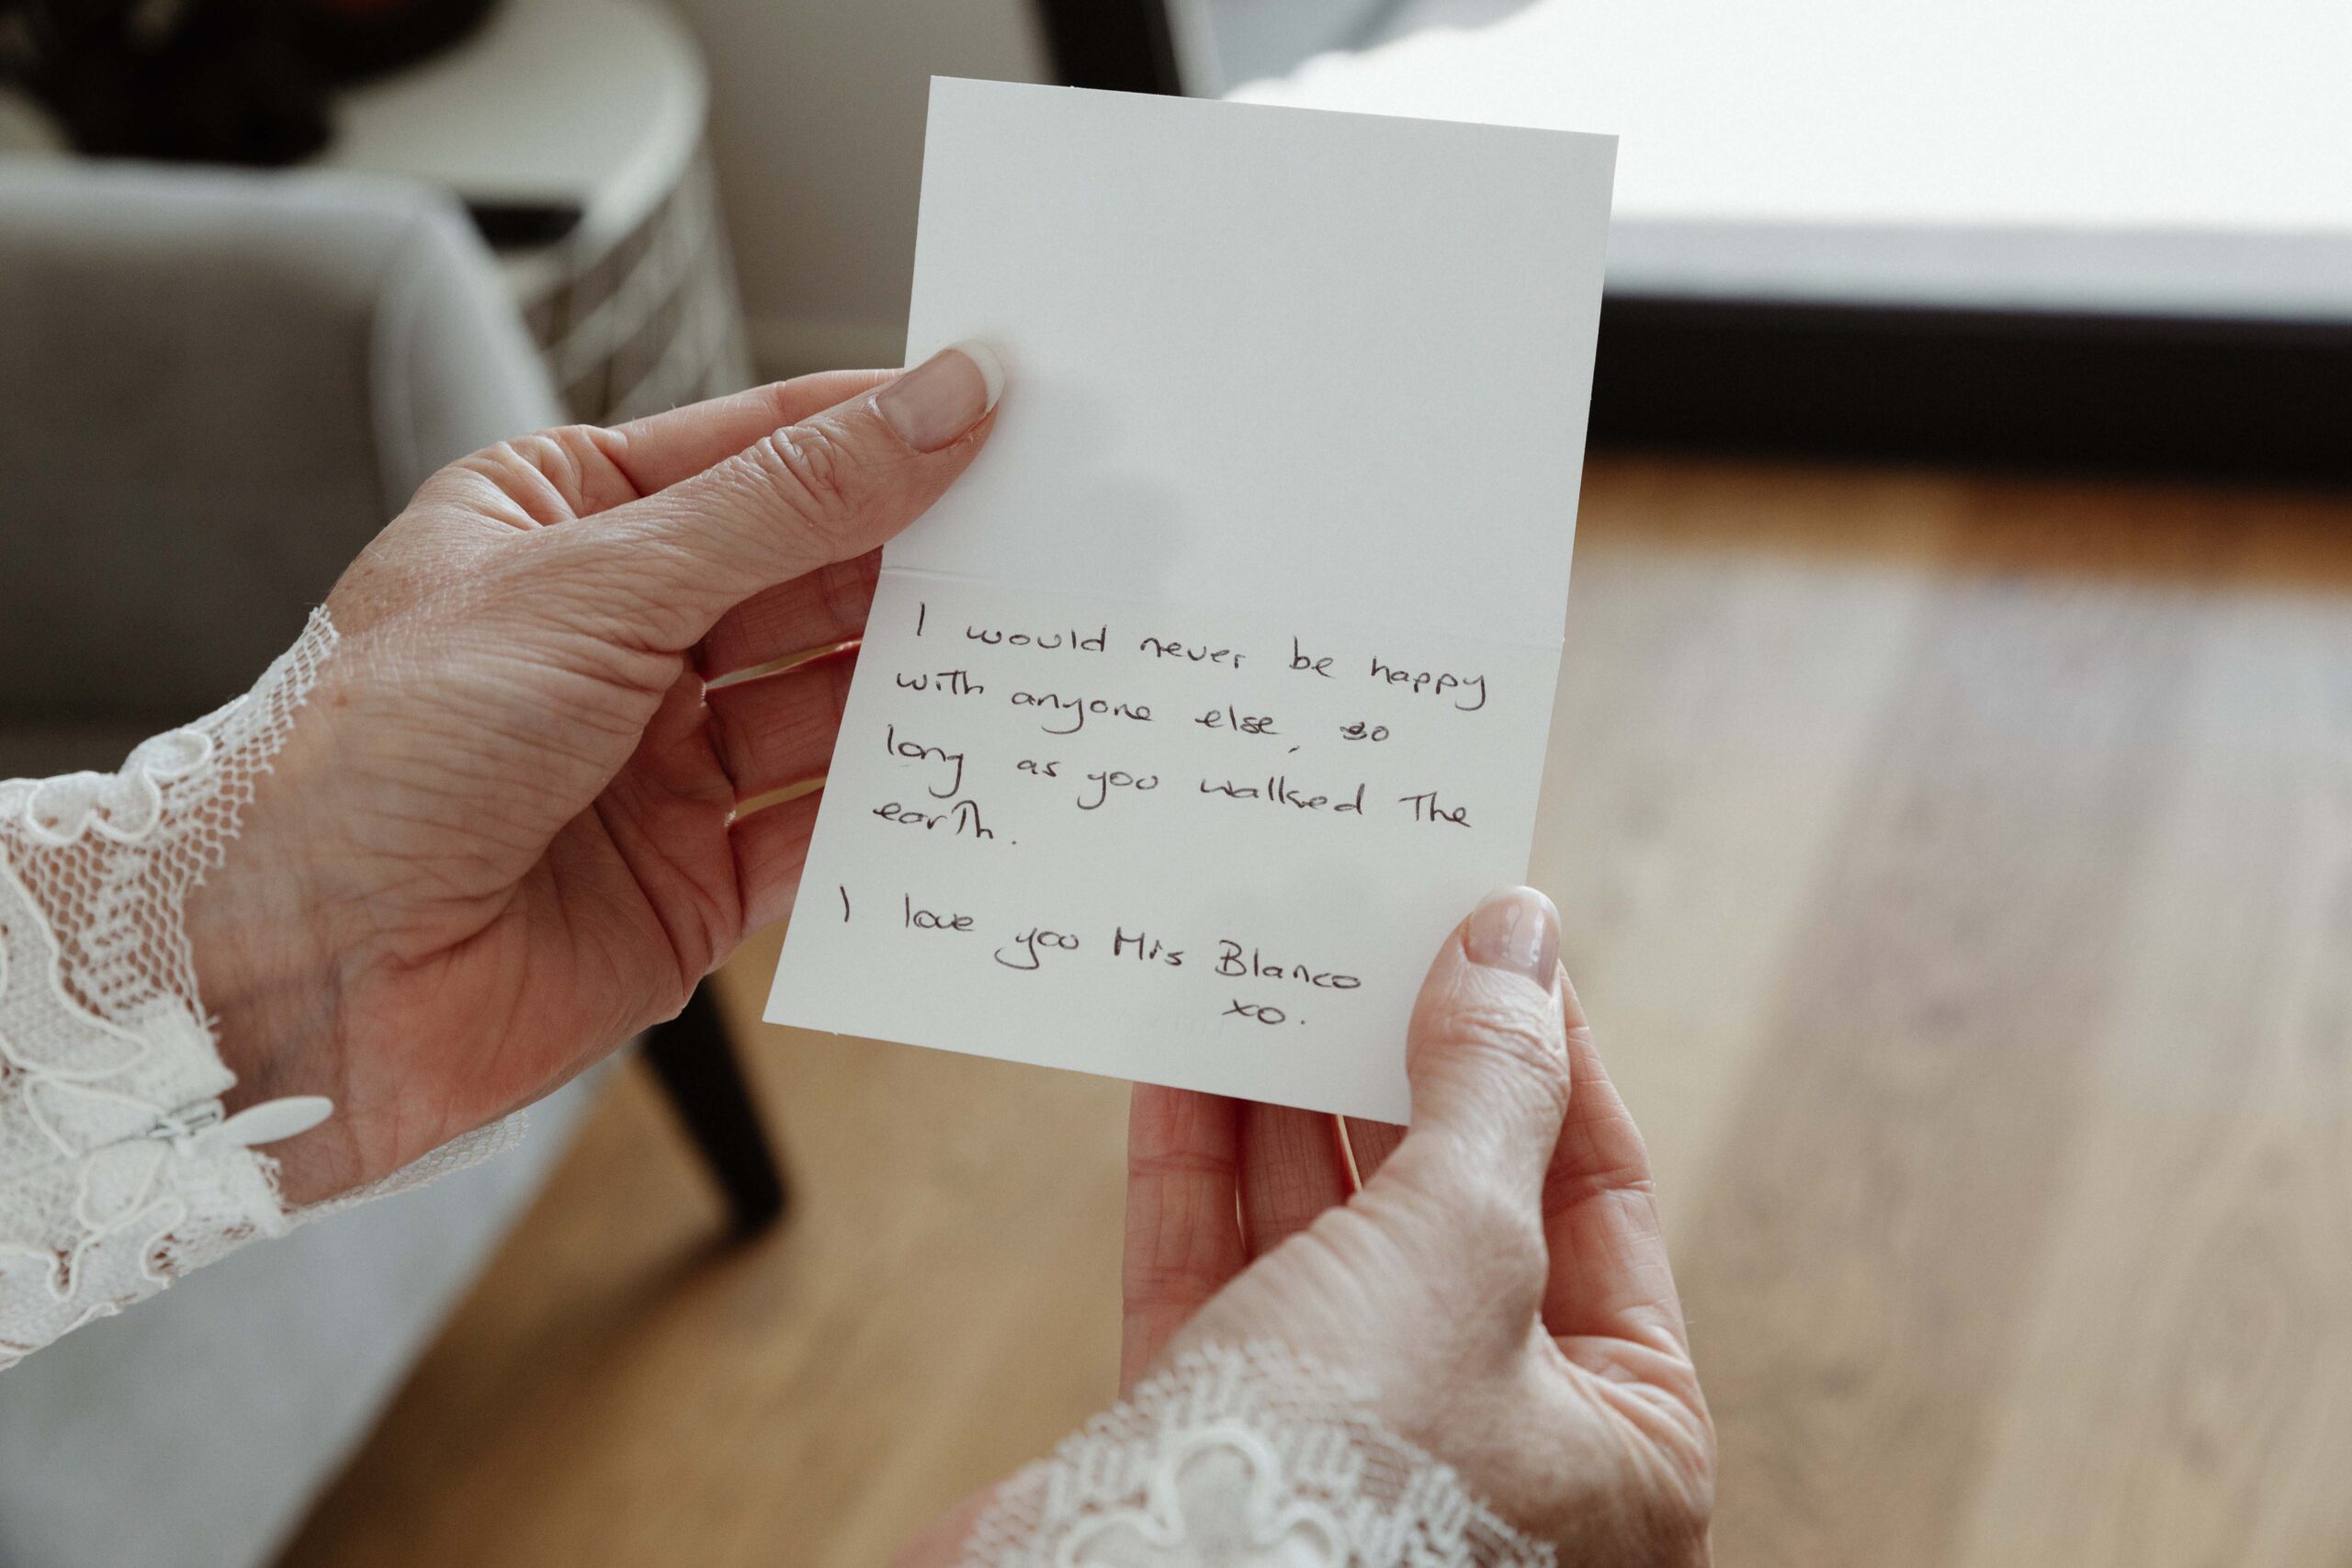 I would never be happy
with anyone else, so
long as you walked the
earth.
I love you Mrs Blanco
xo.